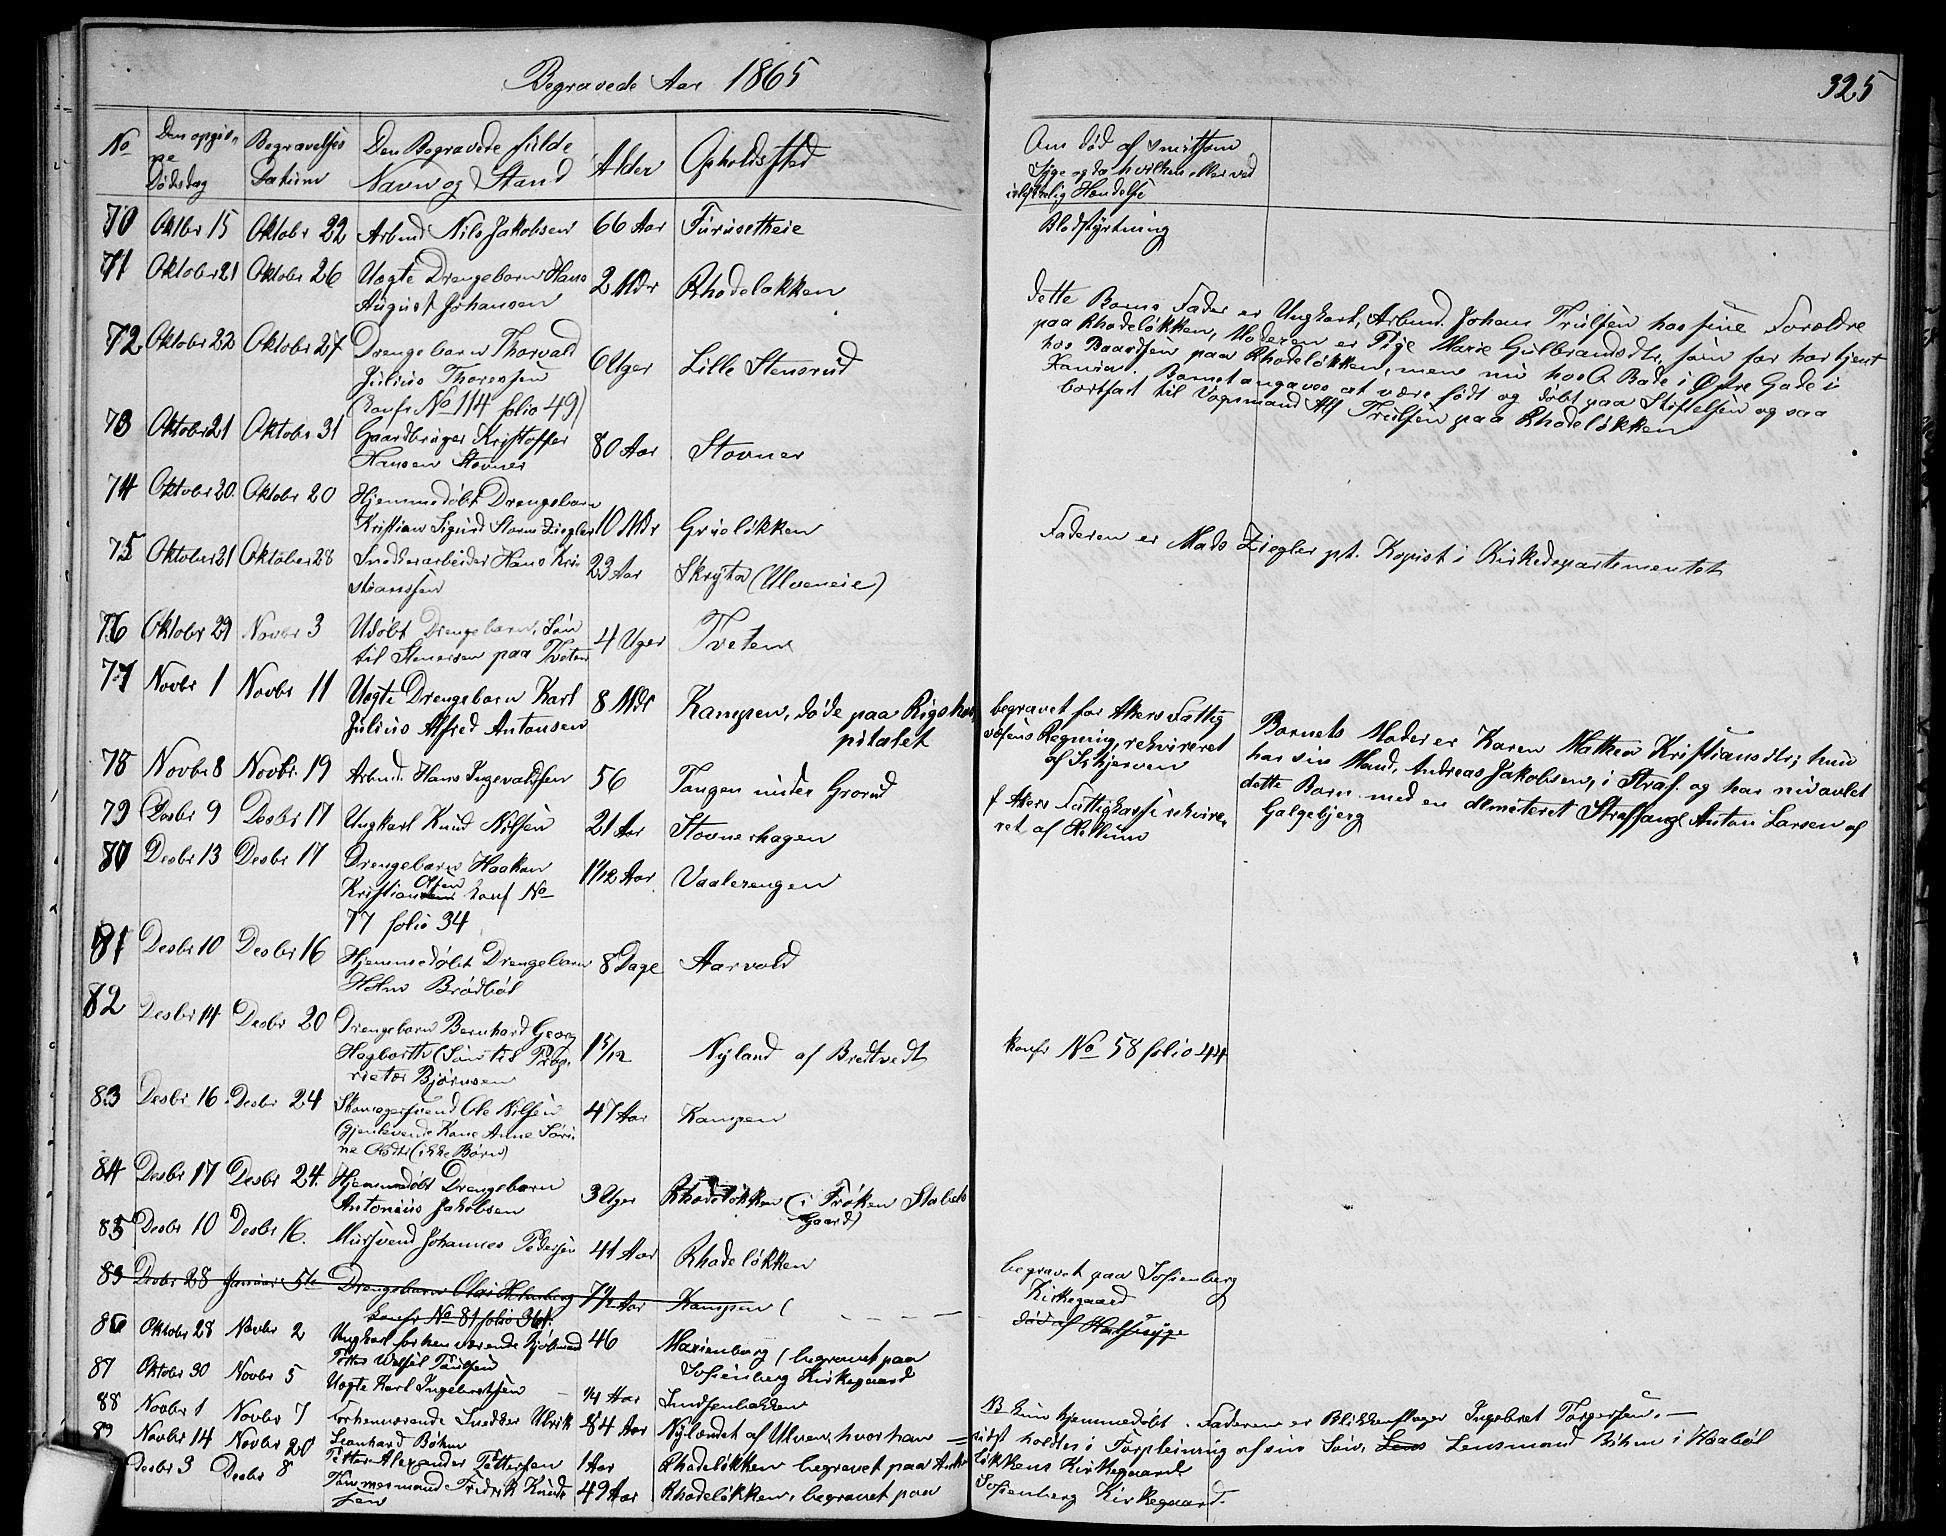 Begravede Aar 1865
325
No
Den opgiv-
ne
Dødsdag
Begravelses
Datum
Den Begravede fulde
Navn og Stand
Alder
Opholdssted
Om død af smitsom
Syge og da hvilken eller ved
Hændelse
70 Oktbr 15 Oktobr 22 Arbmd Nils Jakobsen 66 Aar Furusetheie
Blodstyrtning
71 Oktober 21 Oktobr 26 Uægte Drengebarn Hans
August Johansen 2 Mdr Rhodeløkken
dette Barns Fader er Ungkarl, Arbmd. Johans Trulsen hos sine Forældre
paa Rhodeløkken, Moderen er Pige Marie Gulbrandsdtr, som før har tjent
hos Baardsen paa Rhodeløkken, men nu hos O. Bade i Østre Gade i
Xania. Barnet angaves at være født og døbt paa Stiftelsen og saa
bortsat til Vognmand Alf Trulsen paa Rhodeløkken
72 Oktober 22 Oktobr 27 Drengebarn Thorvald
Julius Thoressen
(Confr No 114 folio 49) 6 Uger Lille Stensrud
73 Oktober 21 Oktobr 31 Gaardbruger Kristoffer
Hansen Stovner 80 Aar Stovner
74 Oktober 20. Oktobr 20 Hjemmedøbt Drengebarn
Kristian Sigurd Storm Ziegler 10 Mdr Grueløkken
Faderen er Mads Ziegler pt. Kopist i Kirkedepartementet
75 Oktober 21 Oktober 28 Snedkerarbeider Hans Kri-
stianssen 23 Aar Skryta (Ulveneie)
76 Oktobr 29 Novbr 3 Udøbt Drengebarn, Søn
til Stenersen paa Tveten 4 Uger Tveten
77 Novbr 1 Novbr 11 Uægte Drengebarn Karl
Julius Alfred Antonsen 8 Mdr Kampen, døde paa Rigshos-
pitalet
begravet for Akers Fattig
væsens Regning, rekvireret
af Skjerven
Barnets Moder er Karen Mathea Kristiansdtr; hun
har sin Mand, Andreas Jakobsen, i Straf. og har nu avlet
dette Barn med en dimitteret Straffange Anton Larsen af
Galgebjerg
78 Novbr 8 Novbr. 19 Arbmd. Hans Ingevaldsen 56 Tangen under Grorud
f Akers Fattigkasse rekvire-
ret af Hellum
79 Desbr 9 Desbr 17 Ungkarl Knud Nilsen 21 Aar Stovnerhagen
80 Desbr 13 Desbr 17 Drengebarn Haakon
Olsen
Kristian Conf No
77 folio 34 1 1/12 Aar Vaalerengen
81 Desbr 10 Desbr 16 Hjemmedøbt Drengebarn
Holm Brødbøl 8 Dage Aarvold
82 Desbr 14 Desbr 20 Drengebarn Bernhard Georg
Hagbarth (Søn til Prop-
rietær Bjørnsen 1 5/12 Nyland af Bredtvedt
konfr No 58 folio 44
83 Desbr 16 Desbr 24 Skomagersvend Ole Nilsen
(gjenlevende Kone Anne Søri-
ne Olsdtr (ikke Børn) 47 Aar Kampen
84 Desbr 17 Desbr 24. Hjemmedøbt Drengebarn
Antonius Jakobsen 3 Uger Rhodeløkken (i Frøken Stabels
Gaard)
85 Desbr 10 Desbr 16. Mursvend Johannes Pedersen 41 Aar Rhodeløkken
begravet paa Sofienberg
Kirkegaard
83 Desbr 28 Januar 5te Drengebarn Olai Holmberg
Confr No 81 folio 361. 7 1/2 Aar Kampen (
død af Halssyge
86 Oktober 28 Novbr 2 Ungkarl forhenværende Kjøbmand
46 Marienborg (begravet paa
Sofienberg Kirkegaard
87 Oktobr 30 Novbr 5 Uægte Karl Ingebretsen 1/4 Aar
NB kun hjemmedøbt. Faderen er Blikkenslager Ingebret Torgersen.
88 Novbr 1 Novbr 7 Forhenværende Snedker Ulrik
Leonhard Bøhm 84 Aar Nylændet af Ulven, hvor han
sidst holdtes i Forpleining af sin Søn, Lens Lensmand Bøhm i Haabøl
89 Novbr 14 Novbr 20 Petter Alexander Pettersen 1 Aar Rhodeløkken begravet paa Anker
løkkens Kirkegaard
Desbr 3 Desbr 8 Tømmermand Fredrik Knud-
sen 49 Aar Rhodeløkken, begravet paa
Sofienberg Kirkegaard.